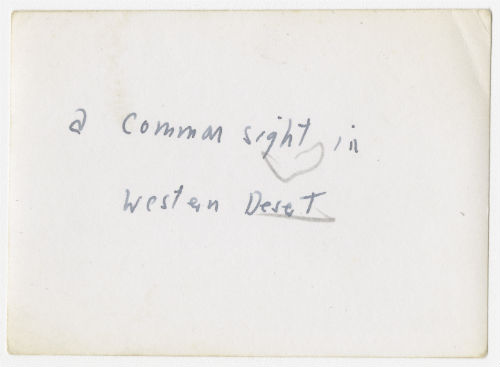 a common sight in
Western Desert